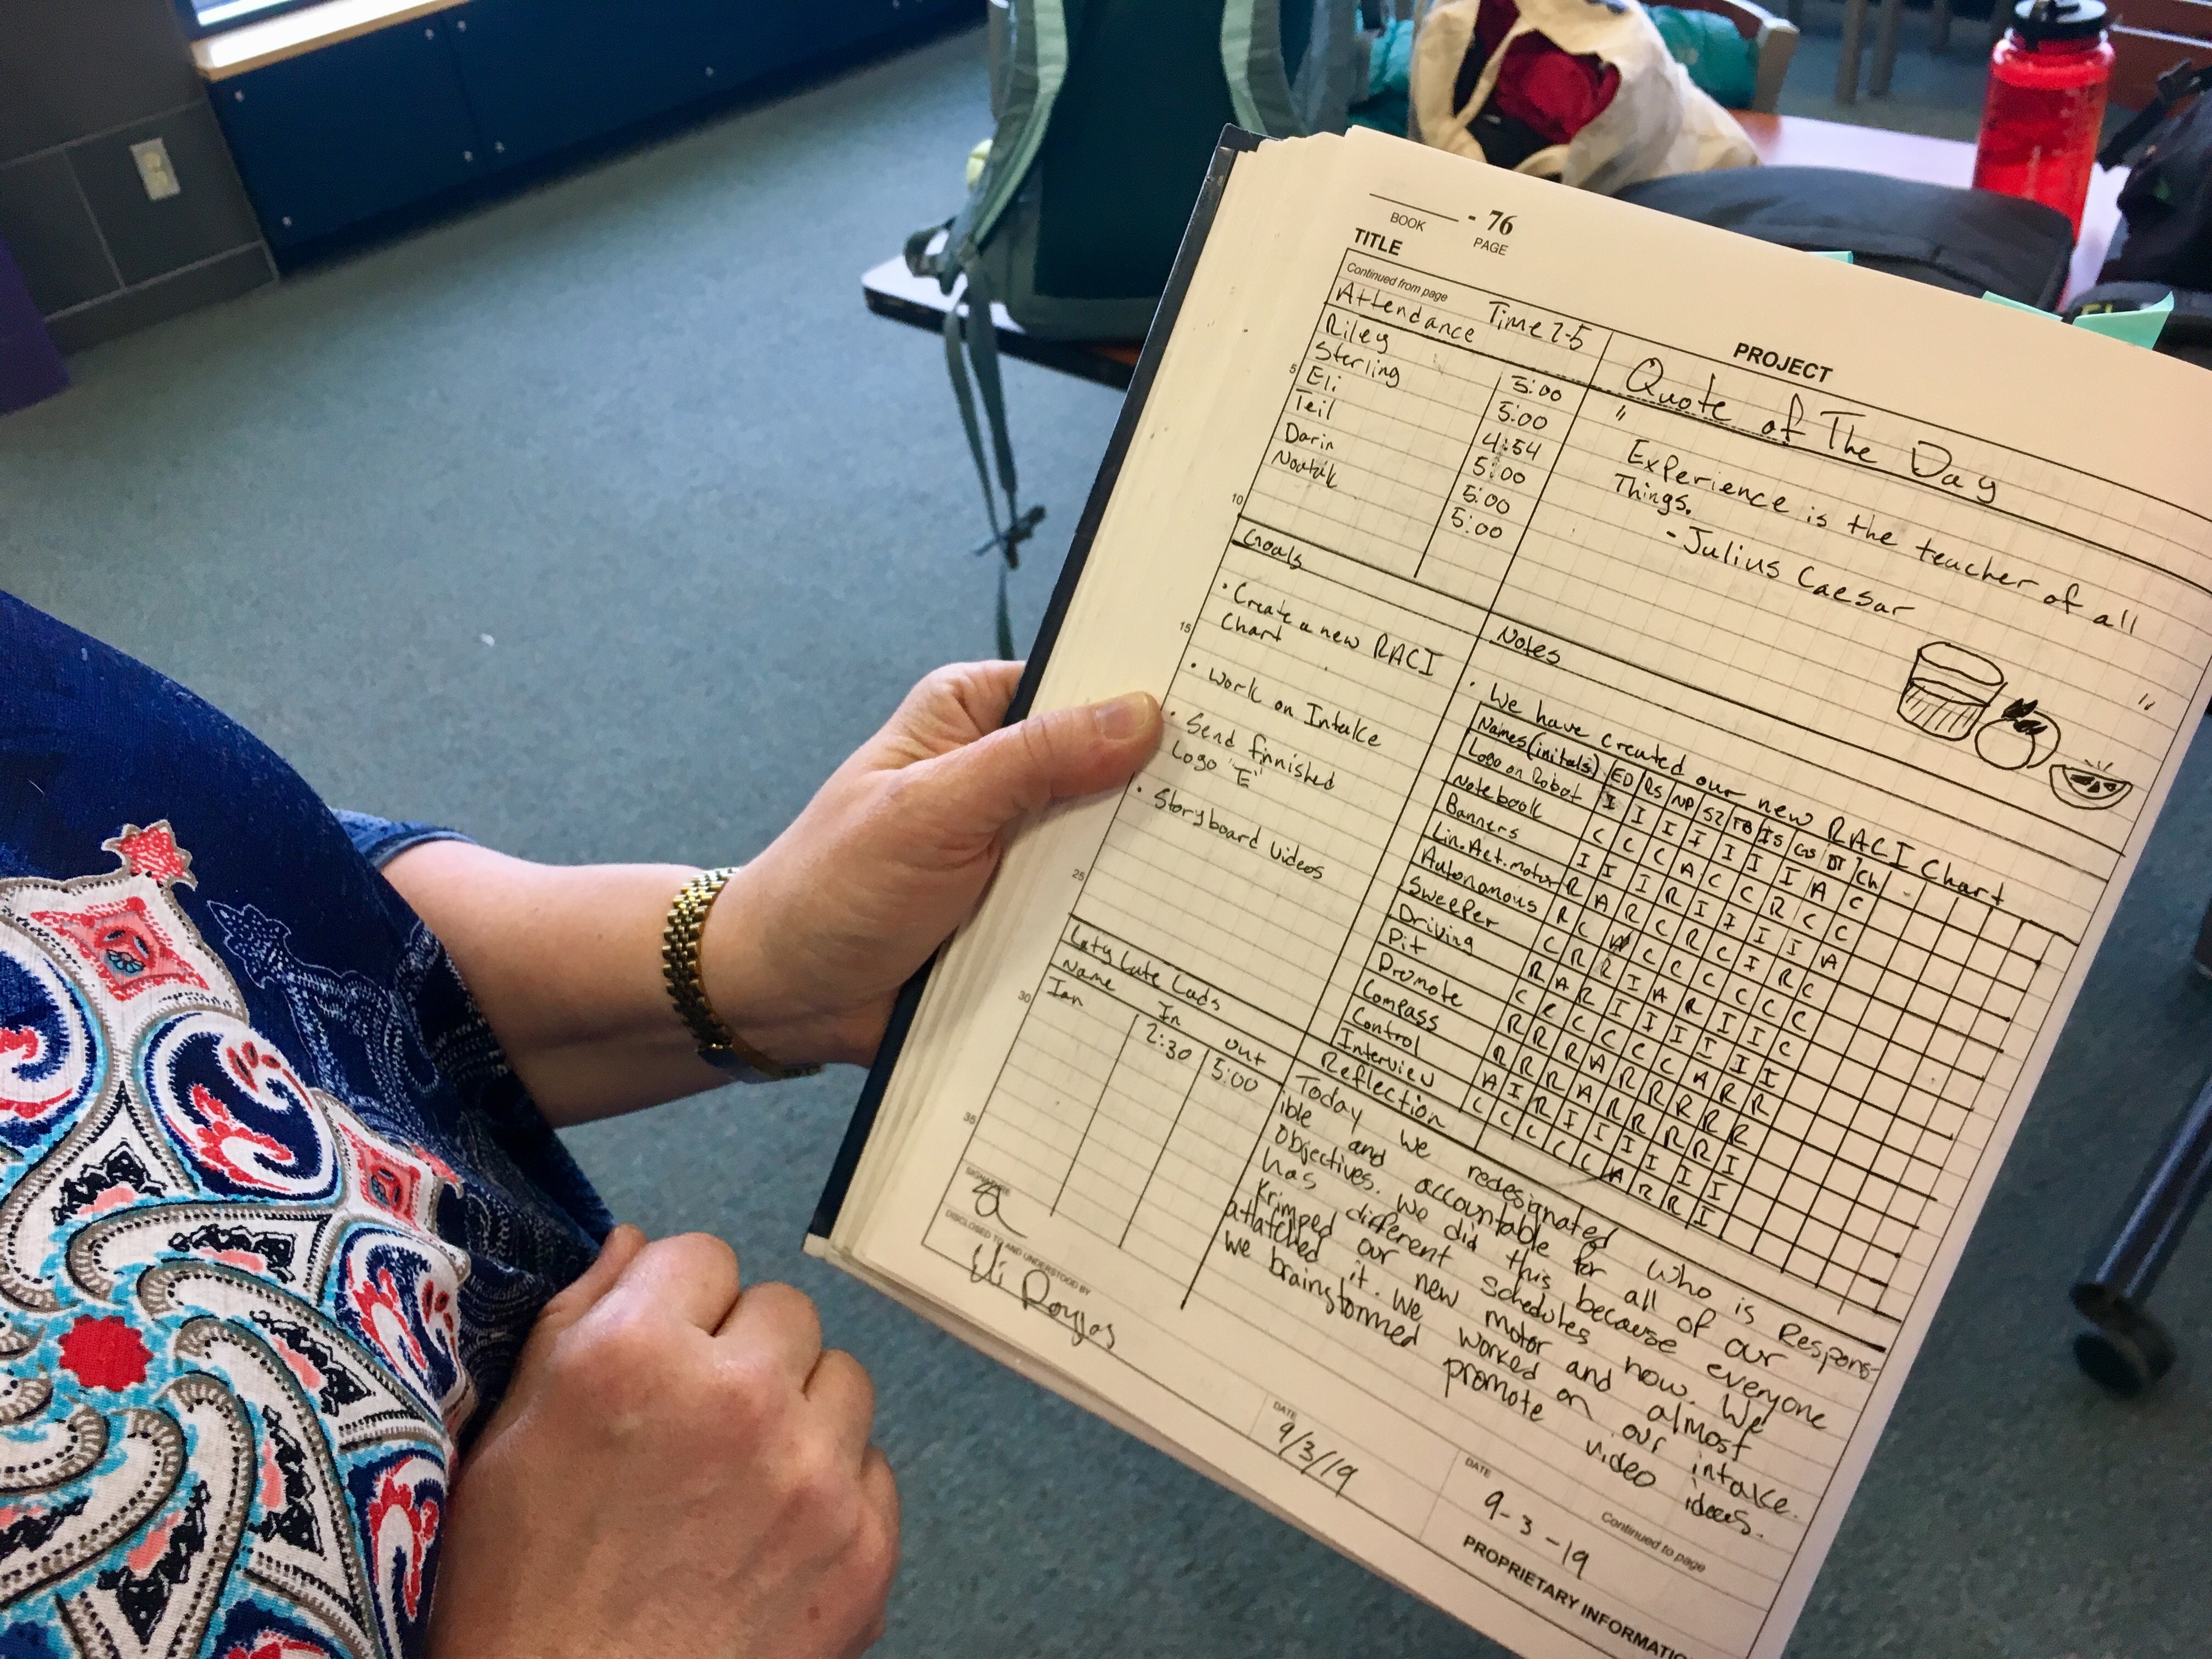 BOOK - 76 PAGE
TITLE
PROJECT
Continued from page
Attendance Time 2-5
Riley 5:00
Sterling 5:00
Eli 4:54
Teil 5:00
Darin 5:00
Noatak 5:00
Quote of The Day
" Experience is the teacher of all
Things. "
- Julius Caesar
Goals
• Create a new RACI
Chart
• Work on Intake
• Send finnished
Logo "E"
• Storyboard Videos
Notes
• We have created our new RACI Chart
Names (initals) ED RS NP SZ TB IS GS DT Ch
Logo on Robot I I I I I I I A C
Notebook C C C A C C R C C
Banners I I I R I I I I A
Lin. Act. motor R A R C R C I R C
Autonomous R C A C C C C C C
Sweeper C R R I A R I I C
Driving R A R I I I I I I
Pit C C C C C C A R R
Promote R R R A R R R R R
Compass R R R A R R R R I
Control A I R I I I I I I
Interview C C C C C A R R I
Laty Late Lads
Name In out
Ian 2:30 5:00
Reflection
Today we redesignated who is Respons-
ible and accountable for all of our
objectives. We did this because everyone
has different schedules now. We
Krimped our new motor and almost
attatched it. We worked on our intake.
We brainstormed promote video ideas.
5
10
15
25
30
35
SIGNATURE
DISCLOSED TO AND UNDERSTOOD BY
Eli Douglas
DATE
9/3/19
DATE
9-3-19
Continued to page
PROPRIETARY INFORMATIO